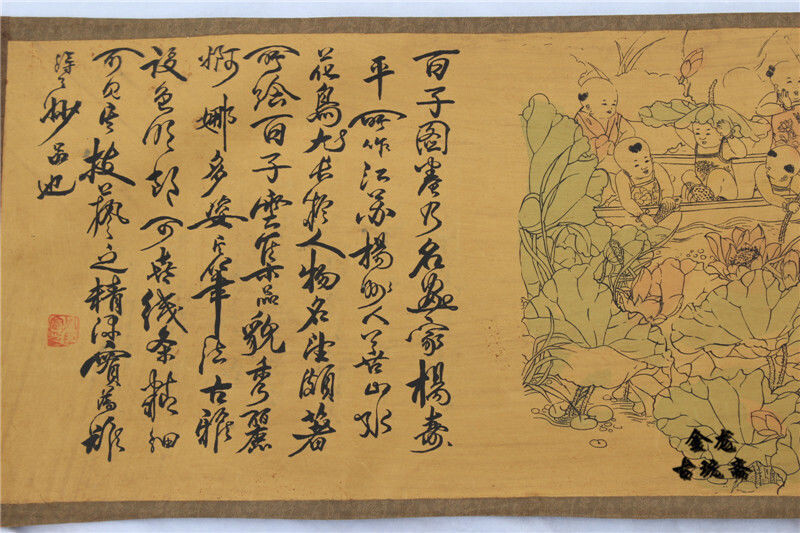 百子图卷乃名画家楊寿
平所作江苏揚州人善山水
花鳥尤长於人物名望颇著
所绘百子雲集品貌秀麗
婀娜多姿其筆法古雅
设色明朗可喜线条精细
可见其技藝之精深實为难
得之妙品也
金龙
古玩斋